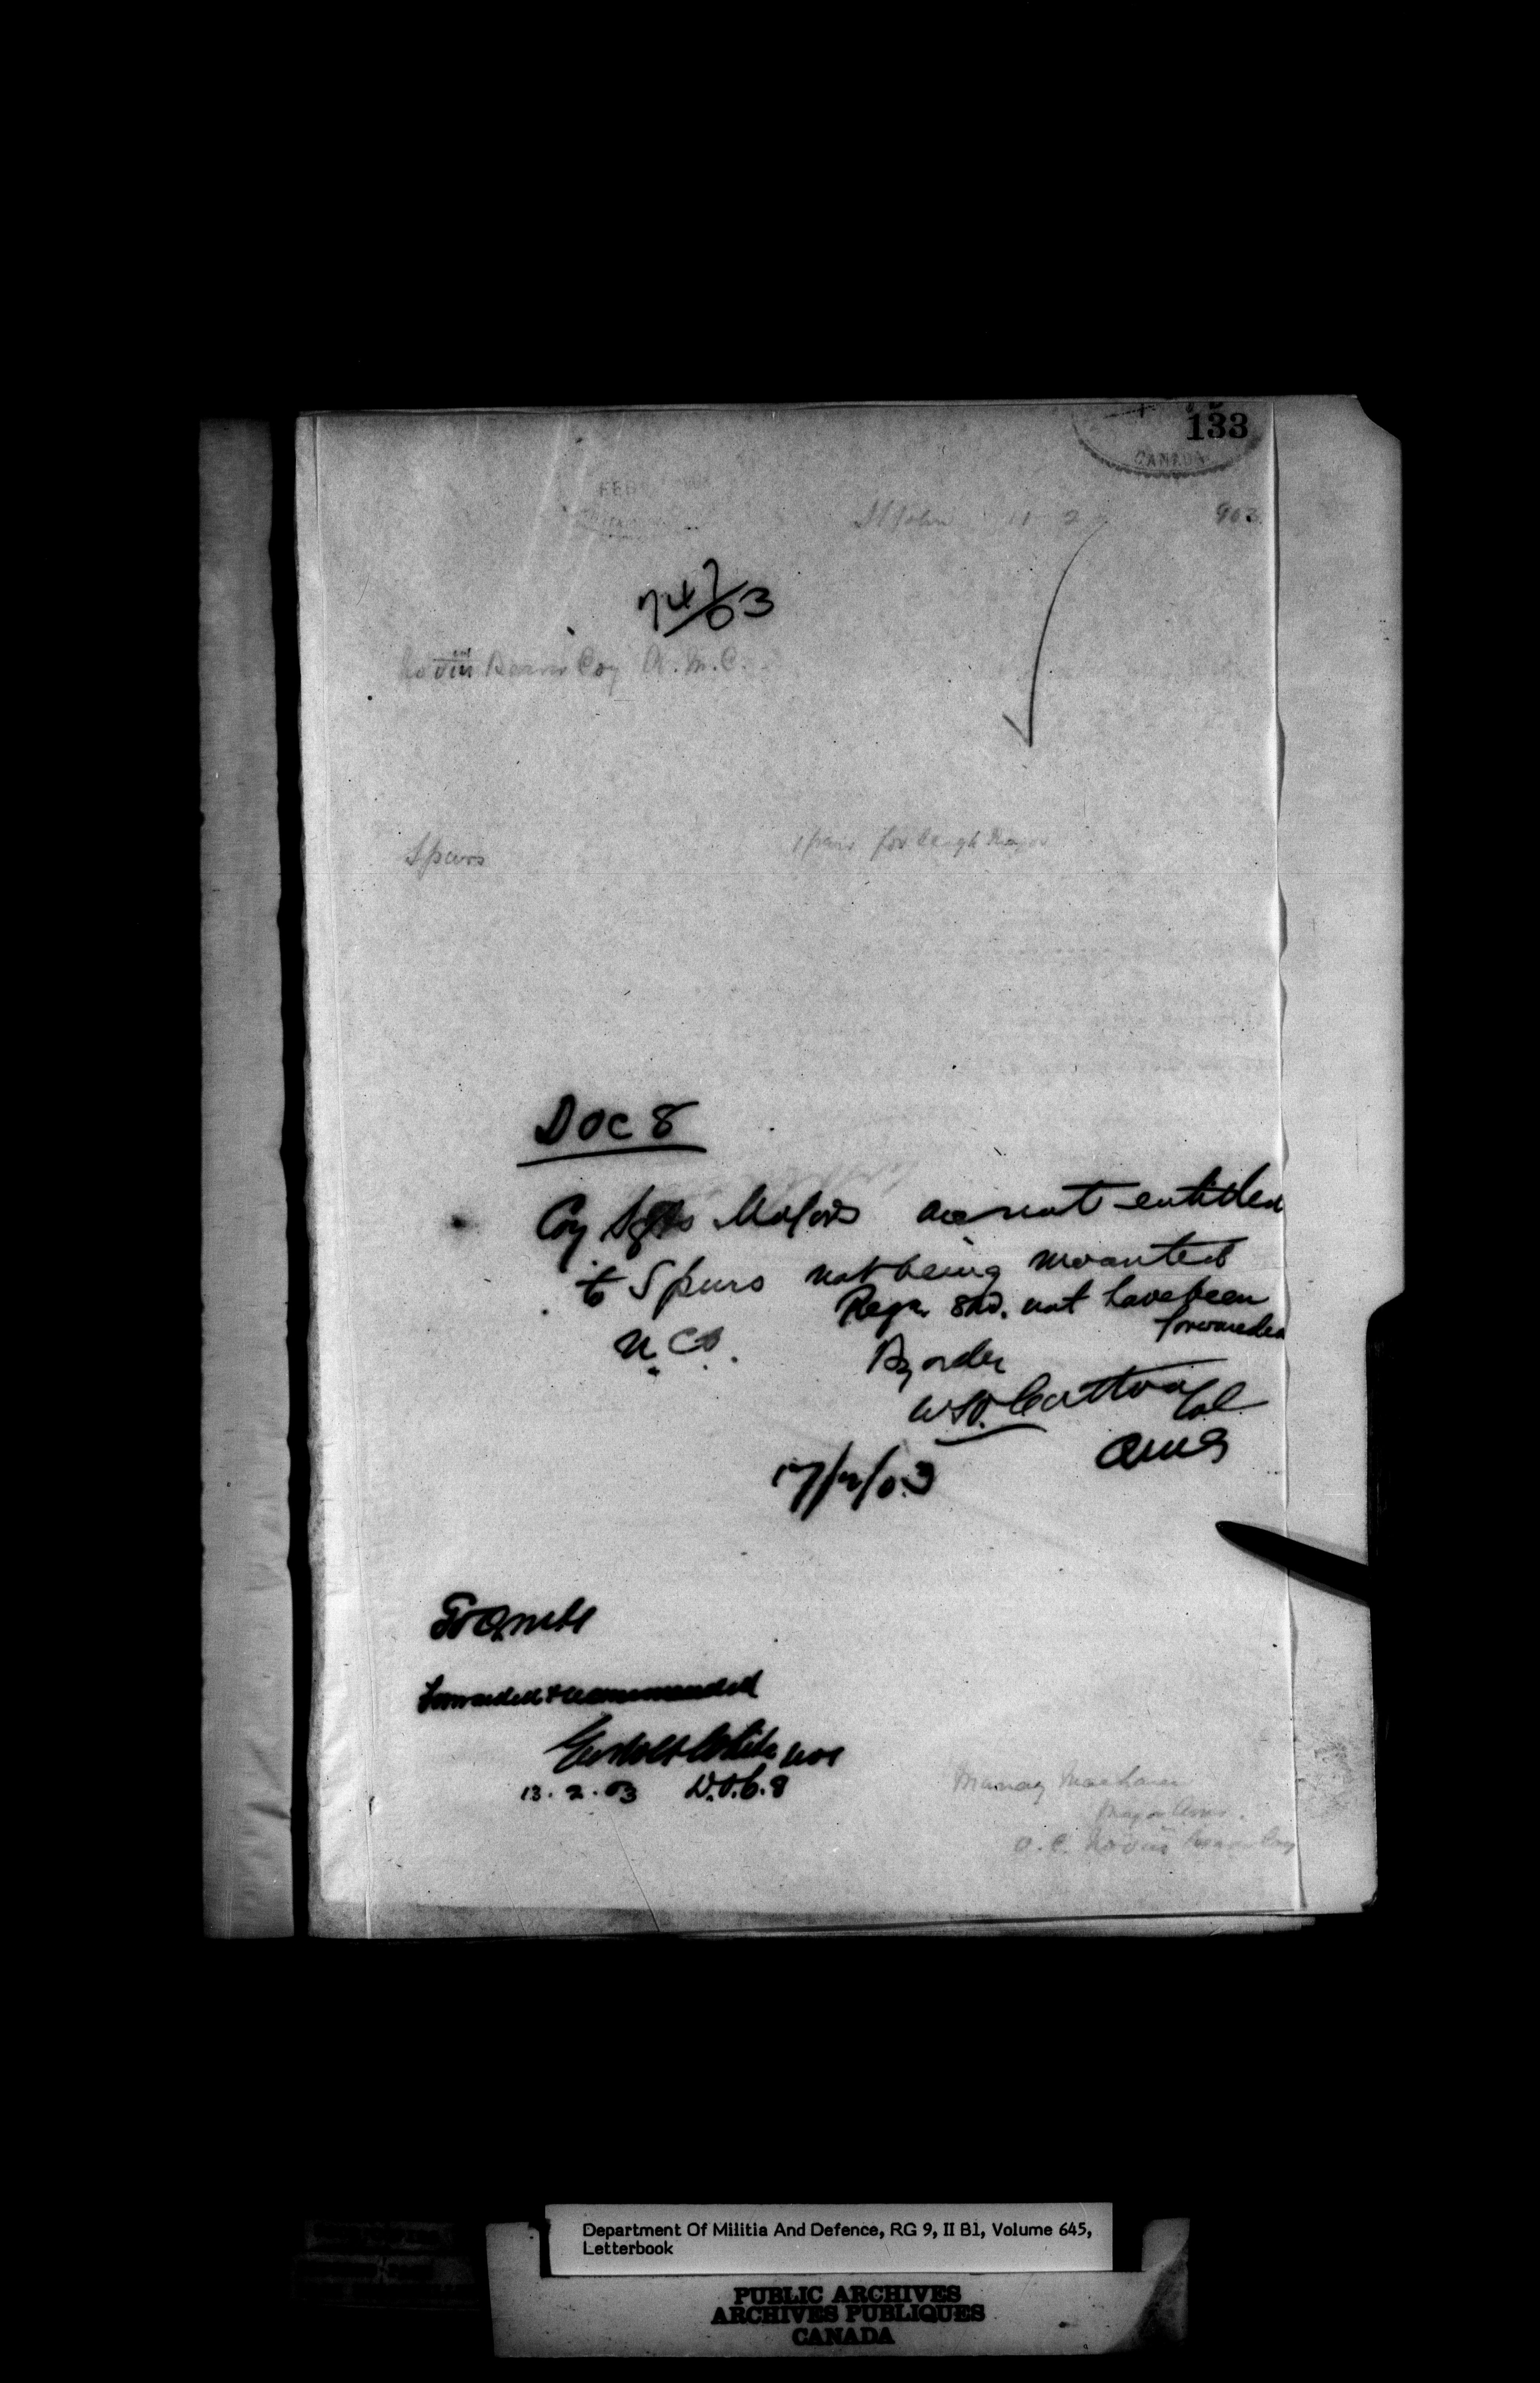 133
CANADA
FEB
St John 11 2 903
747/03
No VIII Bearer Coy A.M.C.
Spurs
1 pair for Sergt Major
DOC 8
Coy Sgts Majors are not entitled
to Spurs not being mounted
Reqn. shd. not have been
forwarded
N.C.O.
By order
Col
QMG
17/2/03
To QMG
Forwarded & recommended
13.2.03 D.O.C. 8
Murray MacLaren
Major AMS.
O.C. No VIII Bearer Coy
Department Of Militia And Defence, RG 9, II B1, Volume 645,
Letterbook
PUBLIC ARCHIVES
ARCHIVES PUBLIQUES
CANADA